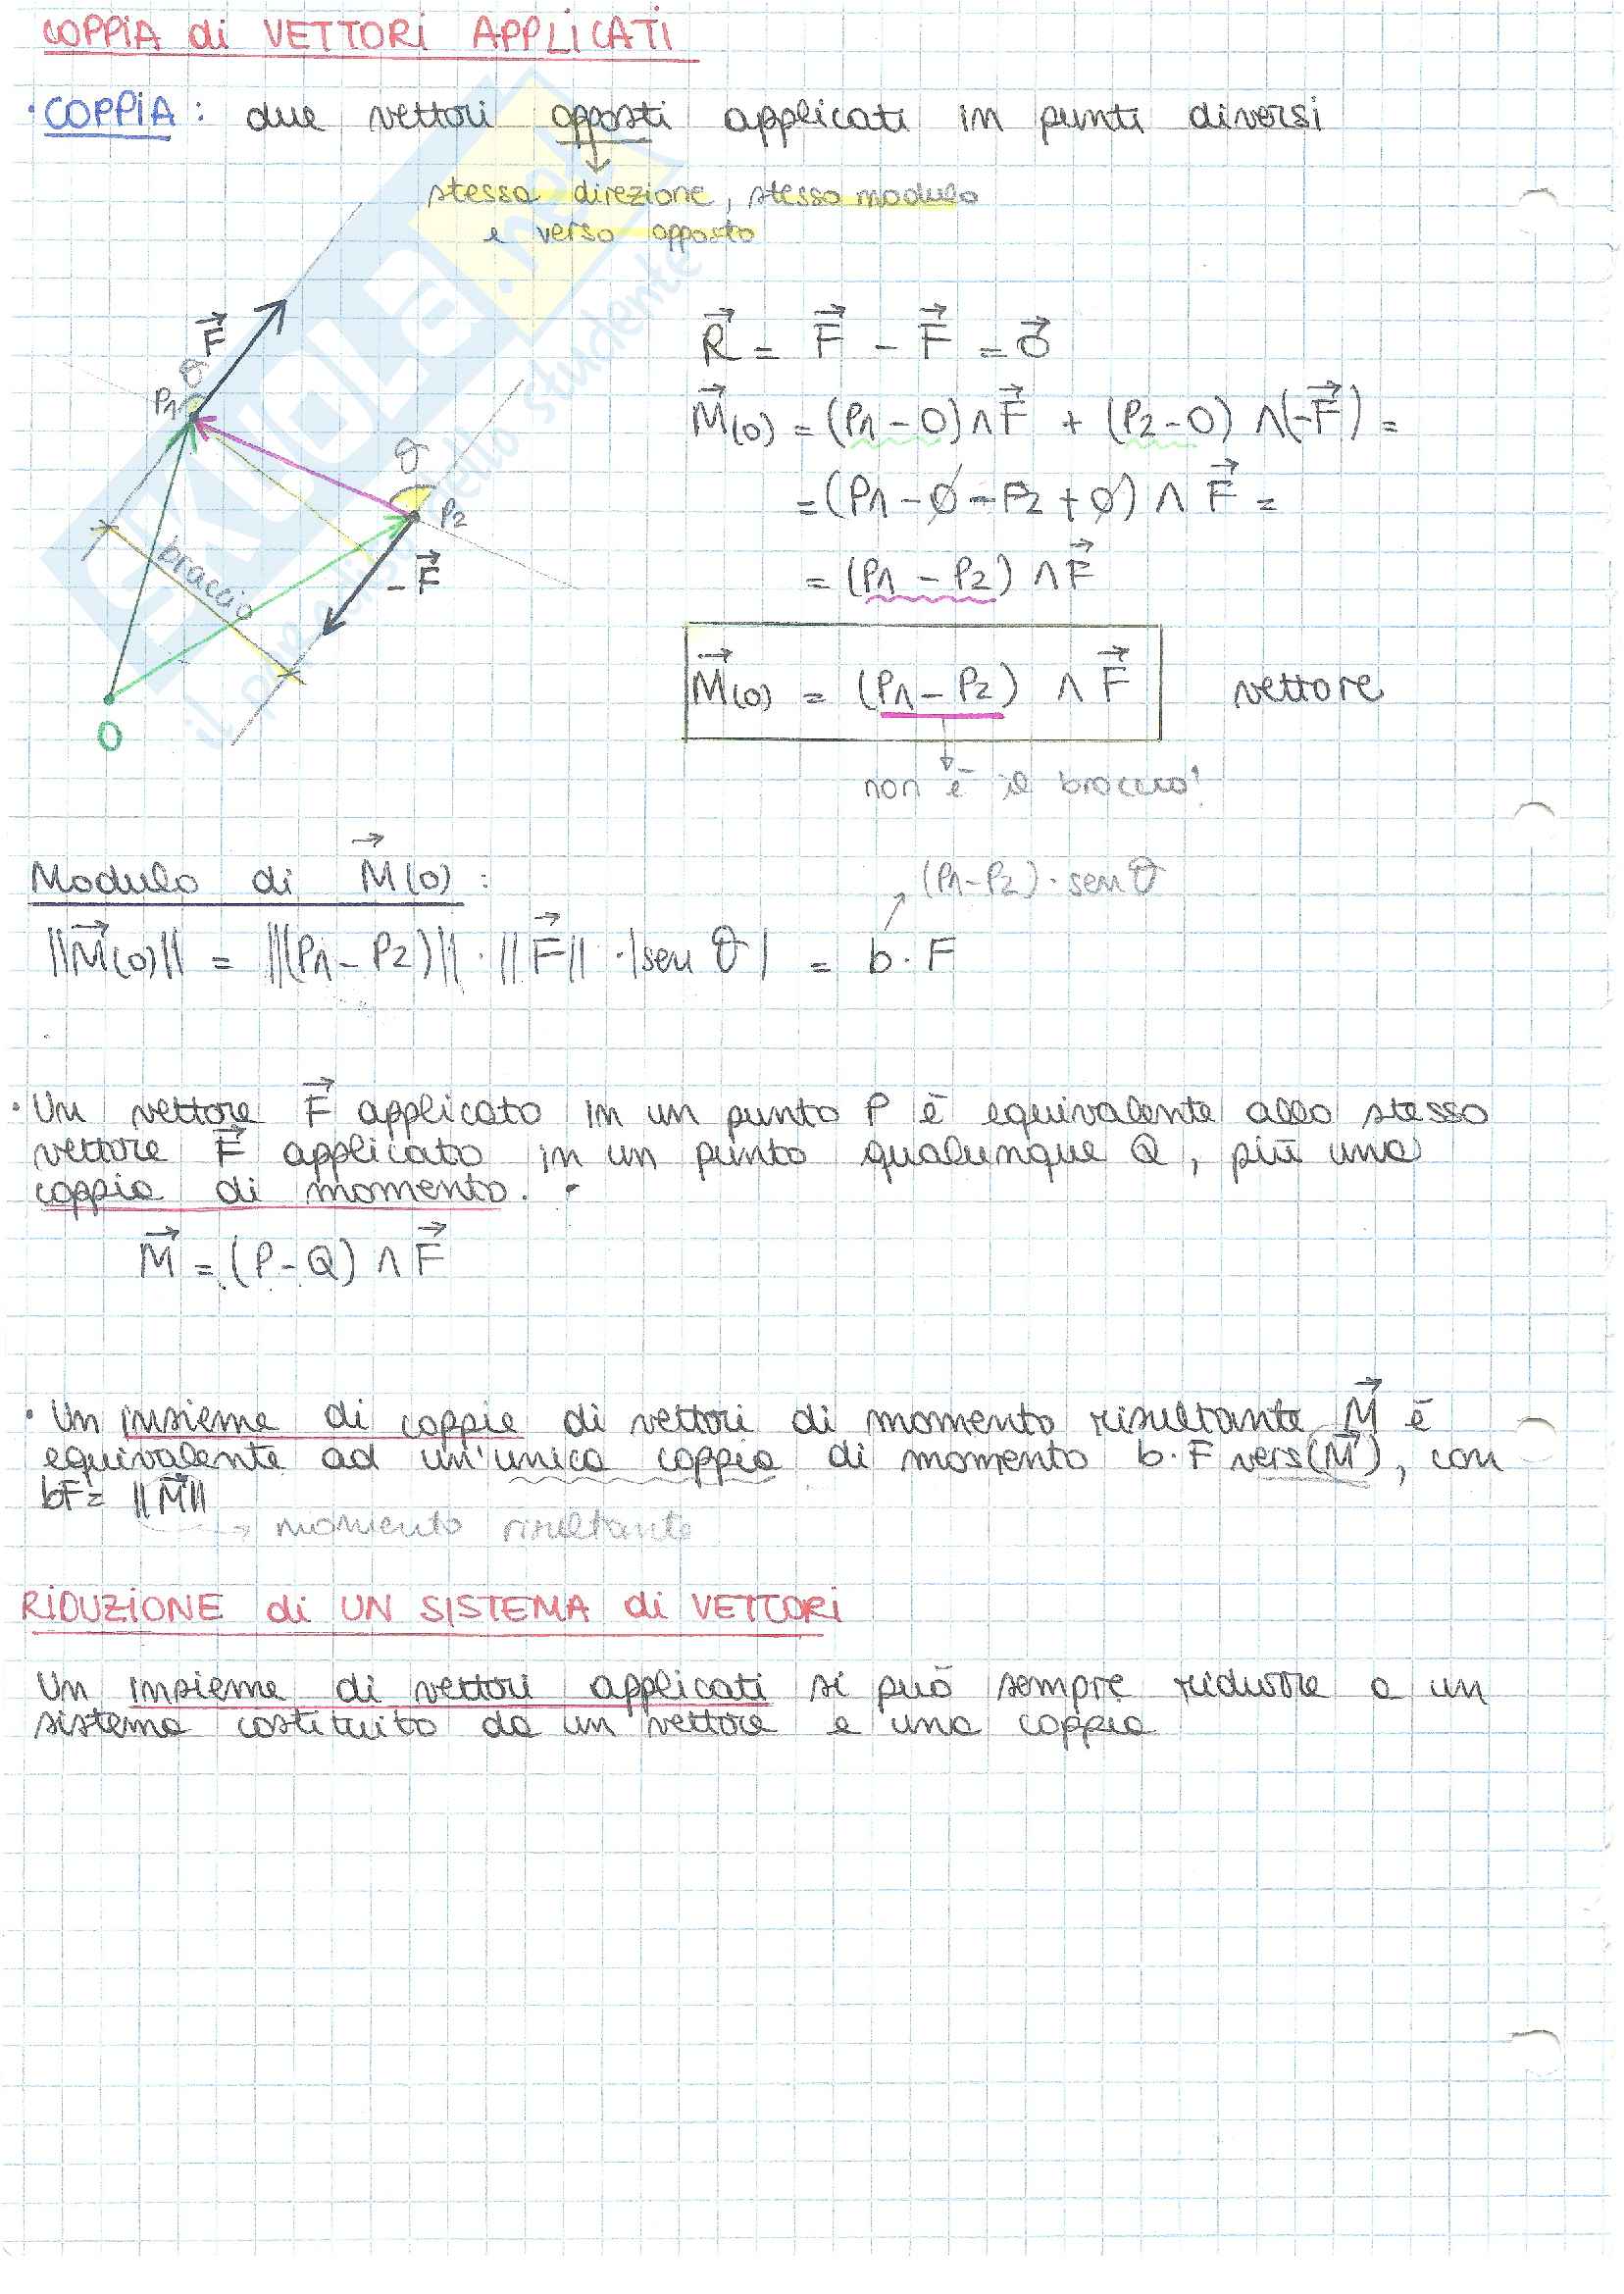 COPPIA di VETTORI APPLICATI
• COPPIA : due vettori opposti applicati in punti diversi
stessa direzione, stesso modulo
e verso opposto
F⃗
θ
P1
θ
P2
-F⃗
braccio
O
R⃗ = F⃗ - F⃗ = 0⃗
M⃗(O) = (P1 - O) ∧ F⃗ + (P2 - O) ∧ (-F⃗) =
= (P1 - O - P2 + O) ∧ F⃗ =
= (P1 - P2) ∧ F⃗
M⃗(O) = (P1 - P2) ∧ F⃗ vettore
non è il braccio!
Modulo di M⃗(O) :
(P1-P2) · sen θ
||M⃗(O)|| = ||(P1 - P2)|| · ||F⃗|| · |sen θ| = b · F
• Un vettore F⃗ applicato in un punto P è equivalente allo stesso
vettore F⃗ applicato in un punto qualunque Q, più una
coppia di momento.
M⃗ = (P - Q) ∧ F⃗
• Un insieme di coppie di vettori di momento risultante M⃗ è
equivalente ad un'unica coppia di momento b·F vers(M⃗), con
bF = ||M⃗||
momento risultante
RIDUZIONE di UN SISTEMA di VETTORI
Un insieme di vettori applicati si può sempre ridurre a un
sistema costituito da un vettore e una coppia